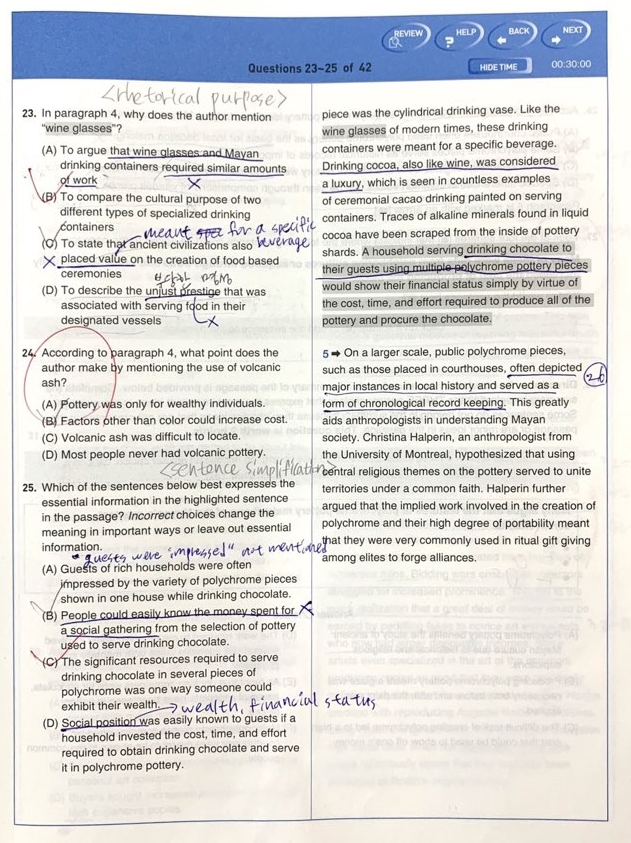 REVIEW HELP BACK NEXT
Questions 23~25 of 42
HIDE TIME 00:30:00
<rhetorical purpose>
23. In paragraph 4, why does the author mention
"wine glasses"?
(A) To argue that wine glasses and Mayan
drinking containers required similar amounts
of work
X
(B) To compare the cultural purpose of two
different types of specialized drinking
containers
meant for a specific
beverage
(C) To state that ancient civilizations also
X placed value on the creation of food based
ceremonies
부당한 명성
(D) To describe the unjust prestige that was
associated with serving food in their
designated vessels
X
24. According to paragraph 4, what point does the
author make by mentioning the use of volcanic
ash?
(A) Pottery was only for wealthy individuals.
(B) Factors other than color could increase cost.
(C) Volcanic ash was difficult to locate.
(D) Most people never had volcanic pottery.
<sentence simplification>
25. Which of the sentences below best expresses the
essential information in the highlighted sentence
in the passage? Incorrect choices change the
meaning in important ways or leave out essential
information.
guests were "impressed" not mentioned
(A) Guests of rich households were often
impressed by the variety of polychrome pieces
shown in one house while drinking chocolate.
(B) People could easily know the money spent for X
a social gathering from the selection of pottery
used to serve drinking chocolate.
(C) The significant resources required to serve
drinking chocolate in several pieces of
polychrome was one way someone could
exhibit their wealth. → wealth, financial status
(D) Social position was easily known to guests if a
household invested the cost, time, and effort
required to obtain drinking chocolate and serve
it in polychrome pottery.
piece was the cylindrical drinking vase. Like the
wine glasses of modern times, these drinking
containers were meant for a specific beverage.
Drinking cocoa, also like wine, was considered
a luxury, which is seen in countless examples
of ceremonial cacao drinking painted on serving
containers. Traces of alkaline minerals found in liquid
cocoa have been scraped from the inside of pottery
shards. A household serving drinking chocolate to
their guests using multiple polychrome pottery pieces
would show their financial status simply by virtue of
the cost, time, and effort required to produce all of the
pottery and procure the chocolate.
5 ➡ On a larger scale, public polychrome pieces,
such as those placed in courthouses, often depicted
26
major instances in local history and served as a
form of chronological record keeping. This greatly
aids anthropologists in understanding Mayan
society. Christina Halperin, an anthropologist from
the University of Montreal, hypothesized that using
central religious themes on the pottery served to unite
territories under a common faith. Halperin further
argued that the implied work involved in the creation of
polychrome and their high degree of portability meant
that they were very commonly used in ritual gift giving
among elites to forge alliances.